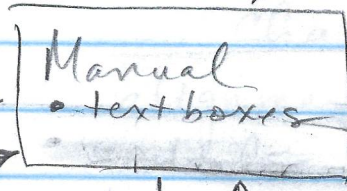 Manual
• textboxes